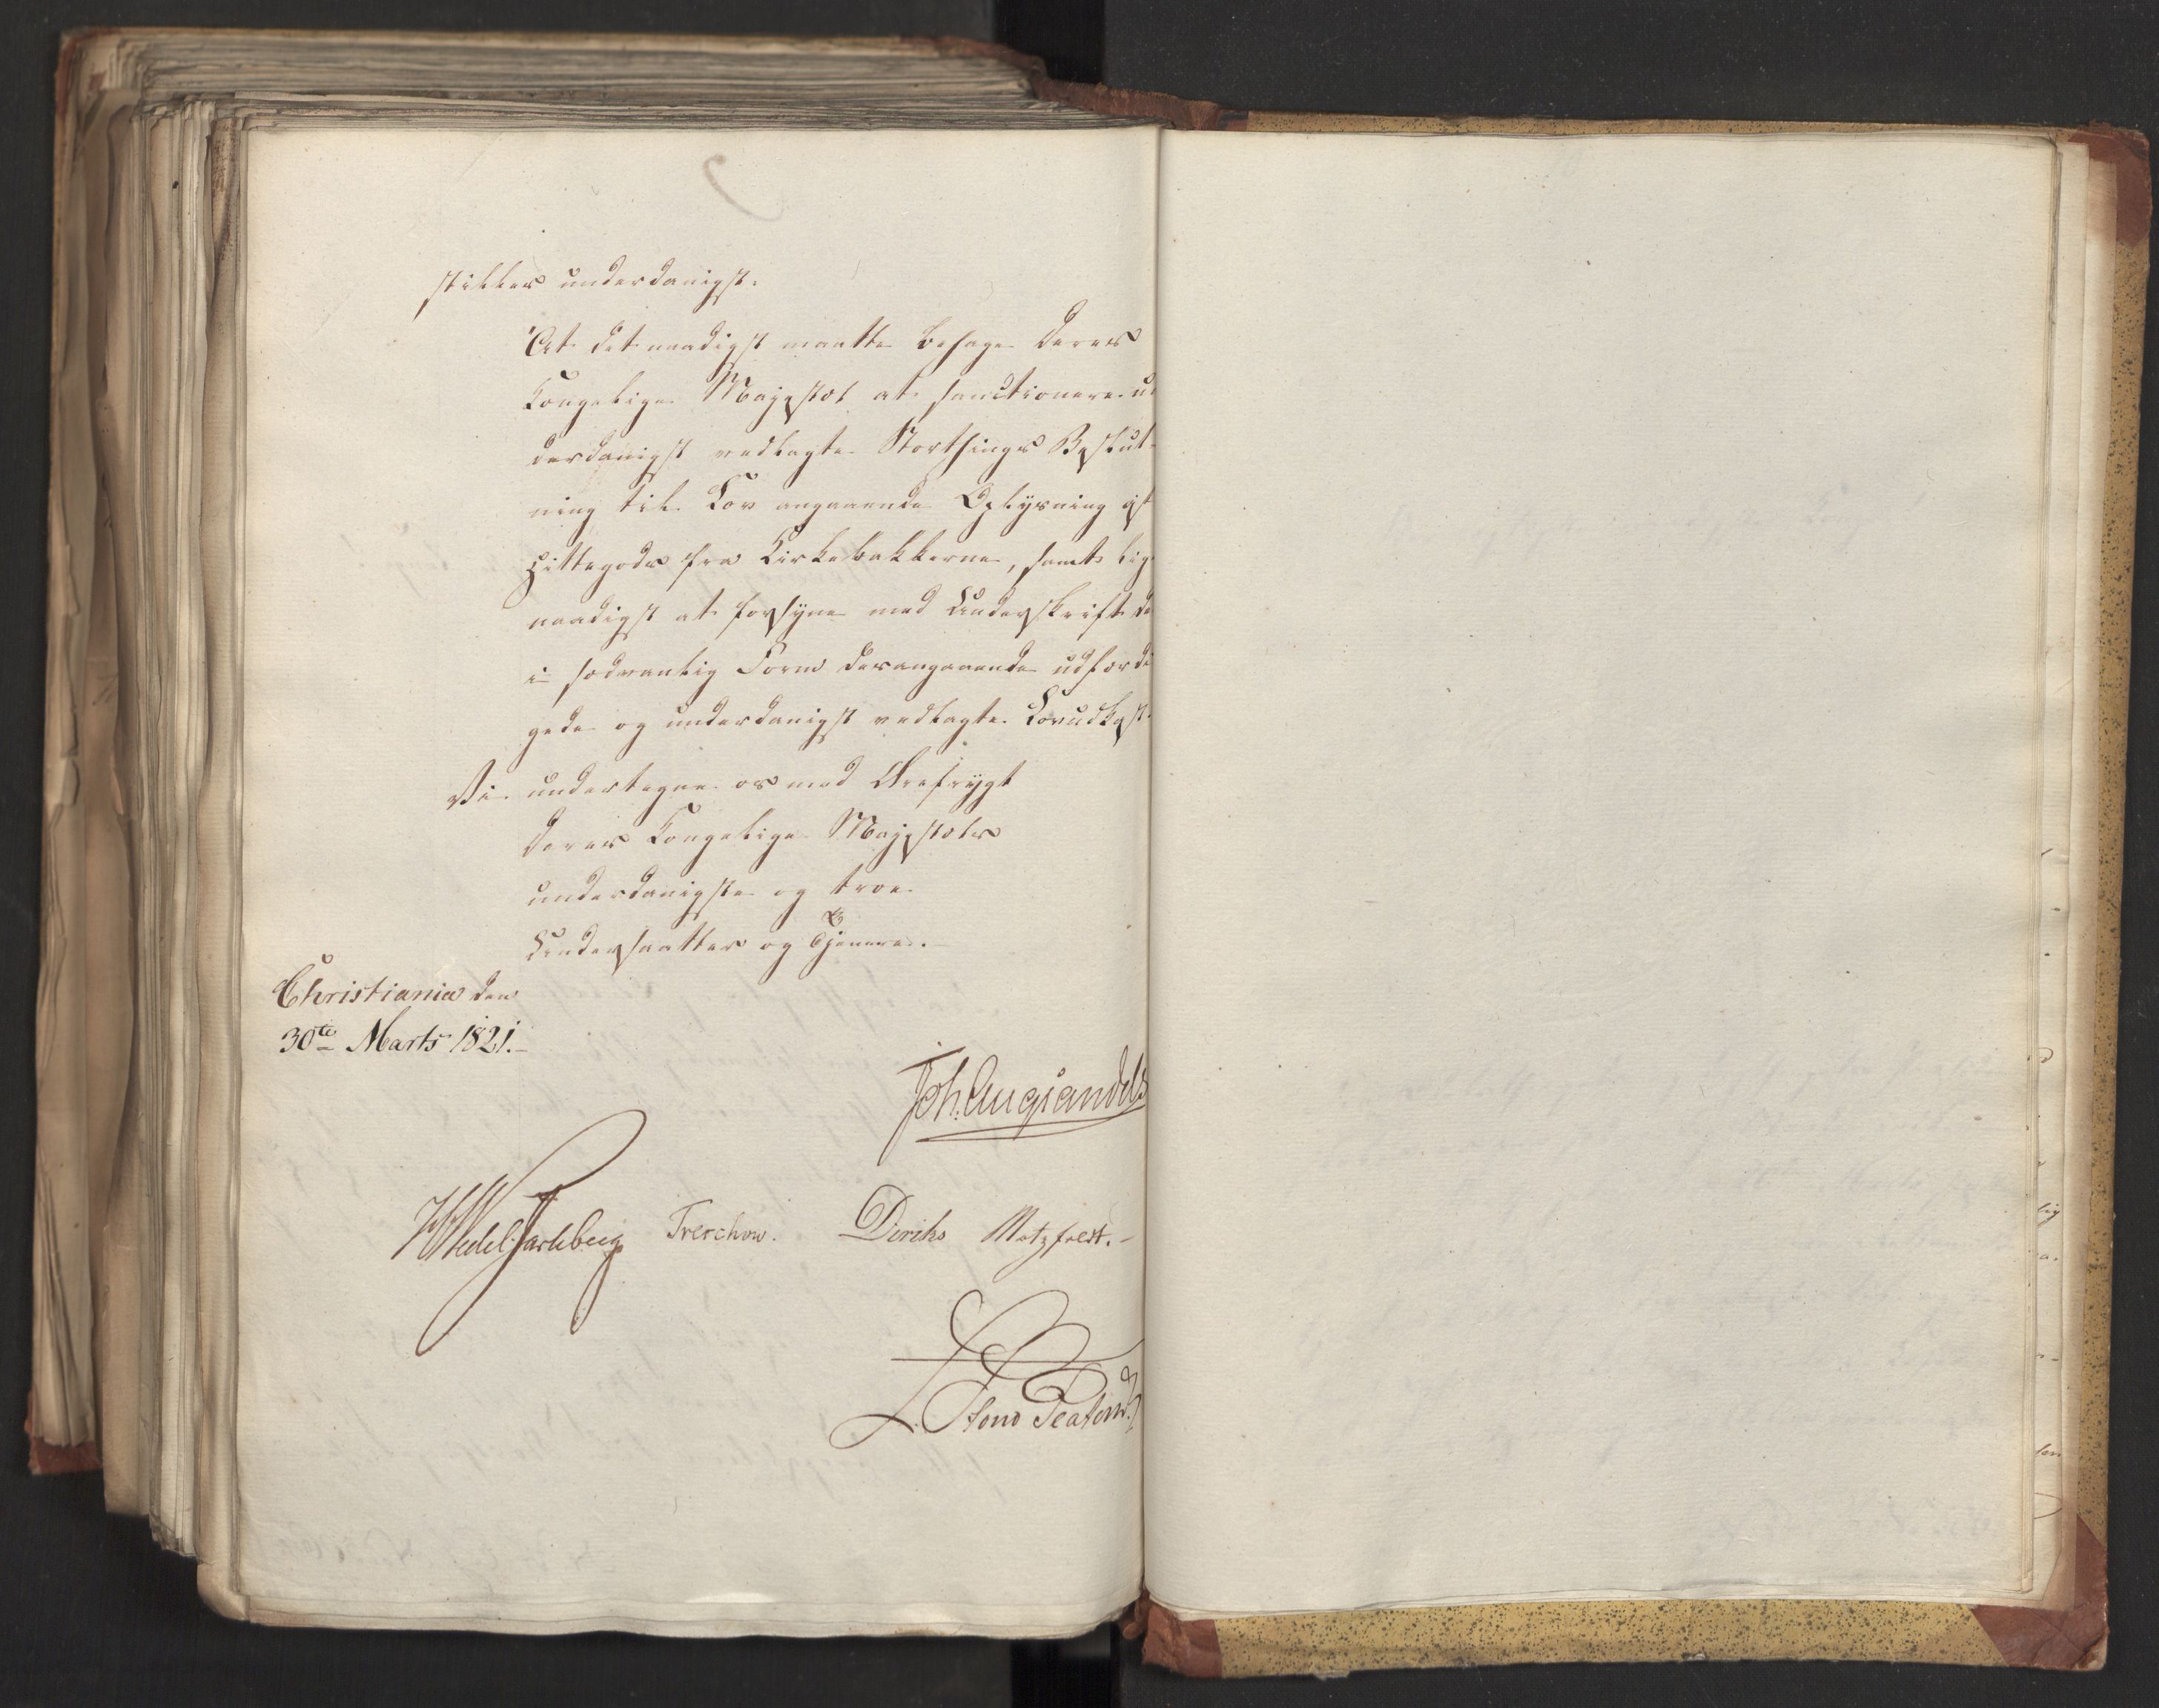 stilles underdanigst:
At det naadigst maatte behage Deres
Kongelige Majestæt at sanctionere un
derdanigst vedlagte Storthings Beslut-
ning til Lov angaaende Oplysning af
Hittegods fra Kirkebakkerne, samt lige
naadigst at forsyne med Underskrift de
i sædvanlig Form derangaaende udfærdi
gede og underdanigst vedlagte Lovudkast.
Vi undertegne os med Ærefrygt
Deres Kongelige Majestæts
underdanigste og troe
Undersaatter og Tjenere.
Christiania den
30te Marts 1821.
Joh. Aug Sandels
HWedel Jarlsberg Treschow. Diriks Motzfeldt.
L. Stoud Platou